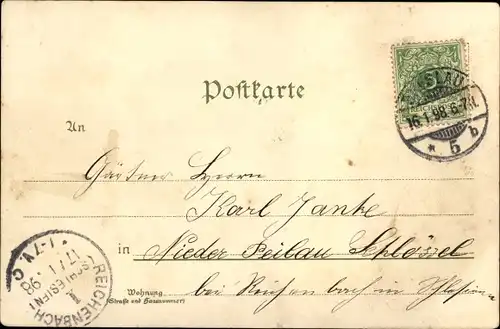 Postkarte
SLAU
16.1.98.6-7N.
* 5 b
An
Gärtner Herrn
Karl Janke
in Nieder Peilau Schlössel
bei Reichenbach in Schlesien
Wohnung
(Straße und Hausnummer)
REICHENBACH
1
17.1.98
* 1-7V. *